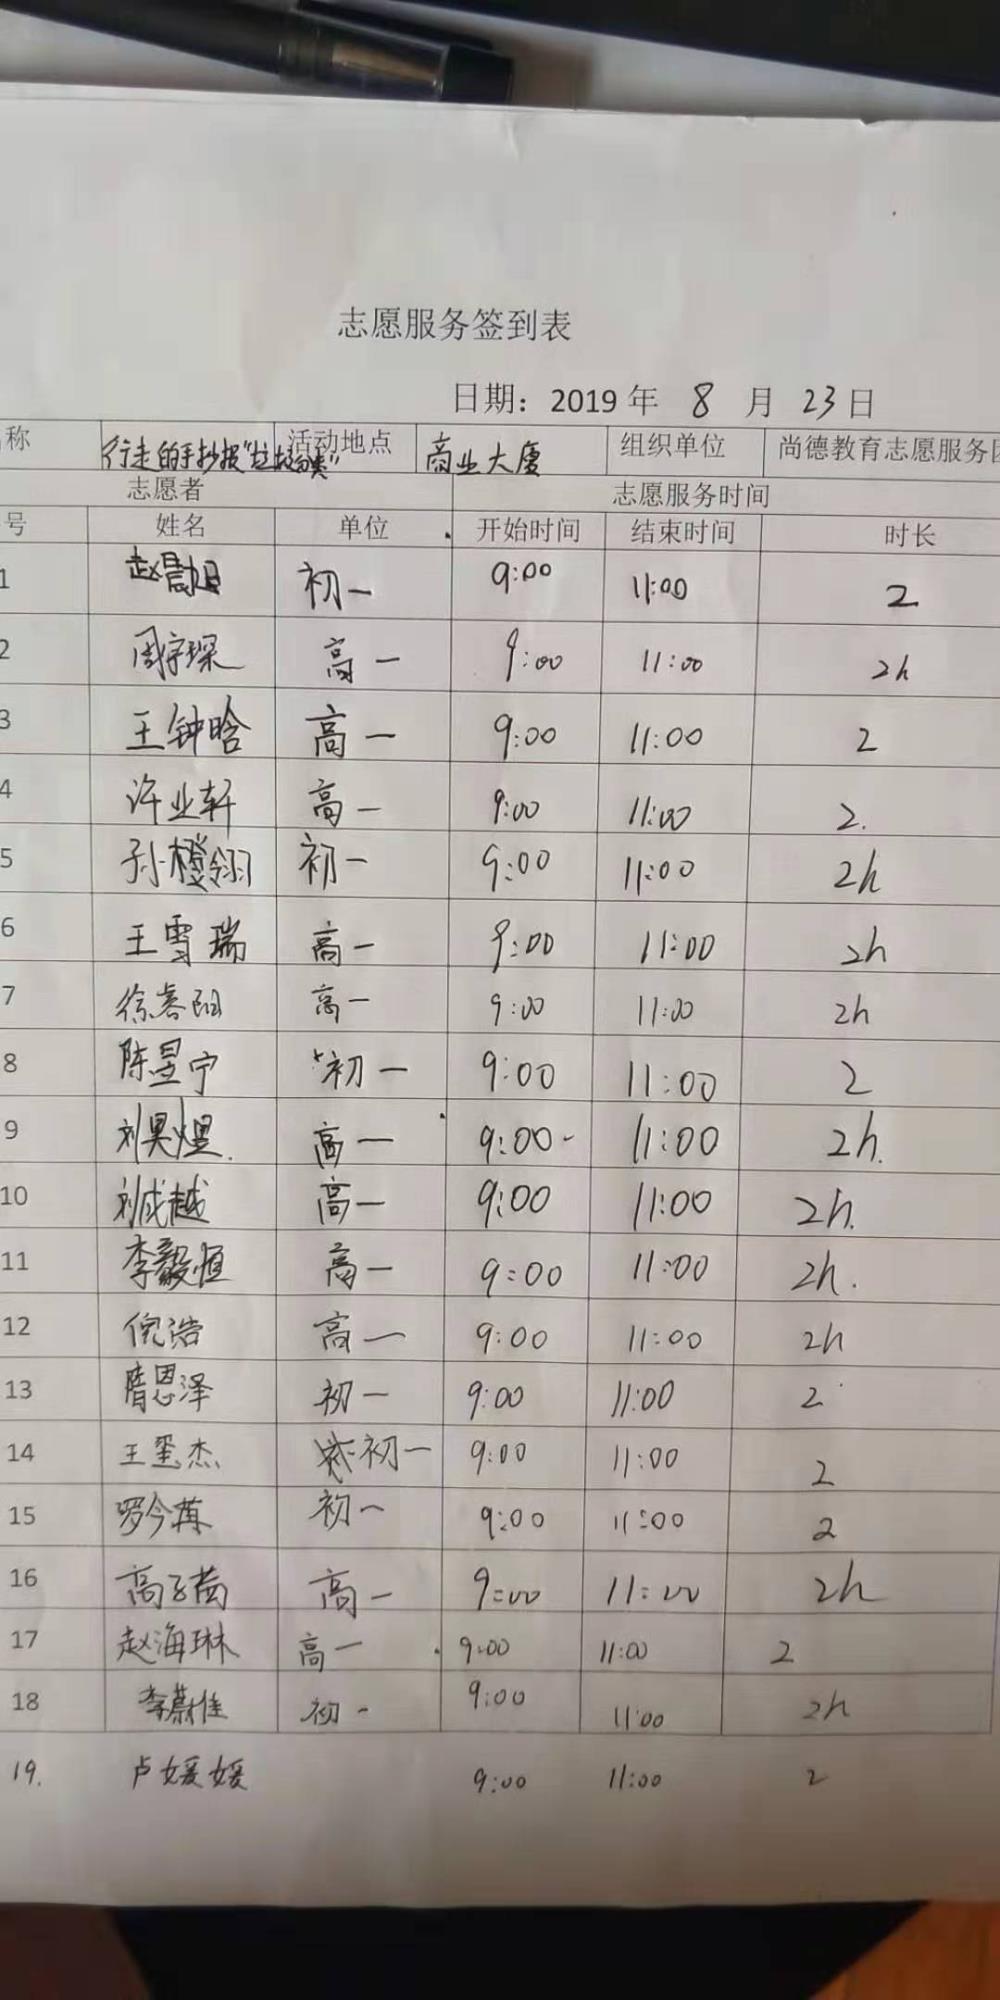 志愿服务签到表
日期：2019年 8 月 23日
称 行走的手抄报"垃圾分类" 活动地点 商业大厦 组织单位 尚德教育志愿服务团
志愿者 志愿服务时间
号 姓名 单位 开始时间 结束时间 时长
1 赵 旭 初一 9:00 11:00 2
2 周宇琛 高一 9:00 11:00 2h
3 王钟晗 高一 9:00 11:00 2
4 许业轩 高一 9:00 11:00 2.
5 孙橙翎 初一 9:00 11:00 2h
6 王雪瑞 高一 9:00 11:00 2h
7 徐睿阳 高一 9:00 11:00 2h
8 陈昱宁 初一 9:00 11:00 2
9 刘昊煜. 高一 9:00- 11:00 2h.
10 刘成越 高一 9:00 11:00 2h.
11 李毅恒 高一 9:00 11:00 2h.
12 倪浩 高一 9:00 11:00 2h
13 隋恩泽 初一 9:00 11:00 2
14 王玺杰 初一 9:00 11:00 2
15 罗今苒 初一 9:00 11:00 2
16 高子茜 高一 9:00 11:00 2h
17 赵海琳 高一 9:00 11:00 2
18 李蔚佳 初一 9:00 11:00 2h
19. 卢媛媛 9:00 11:00 2